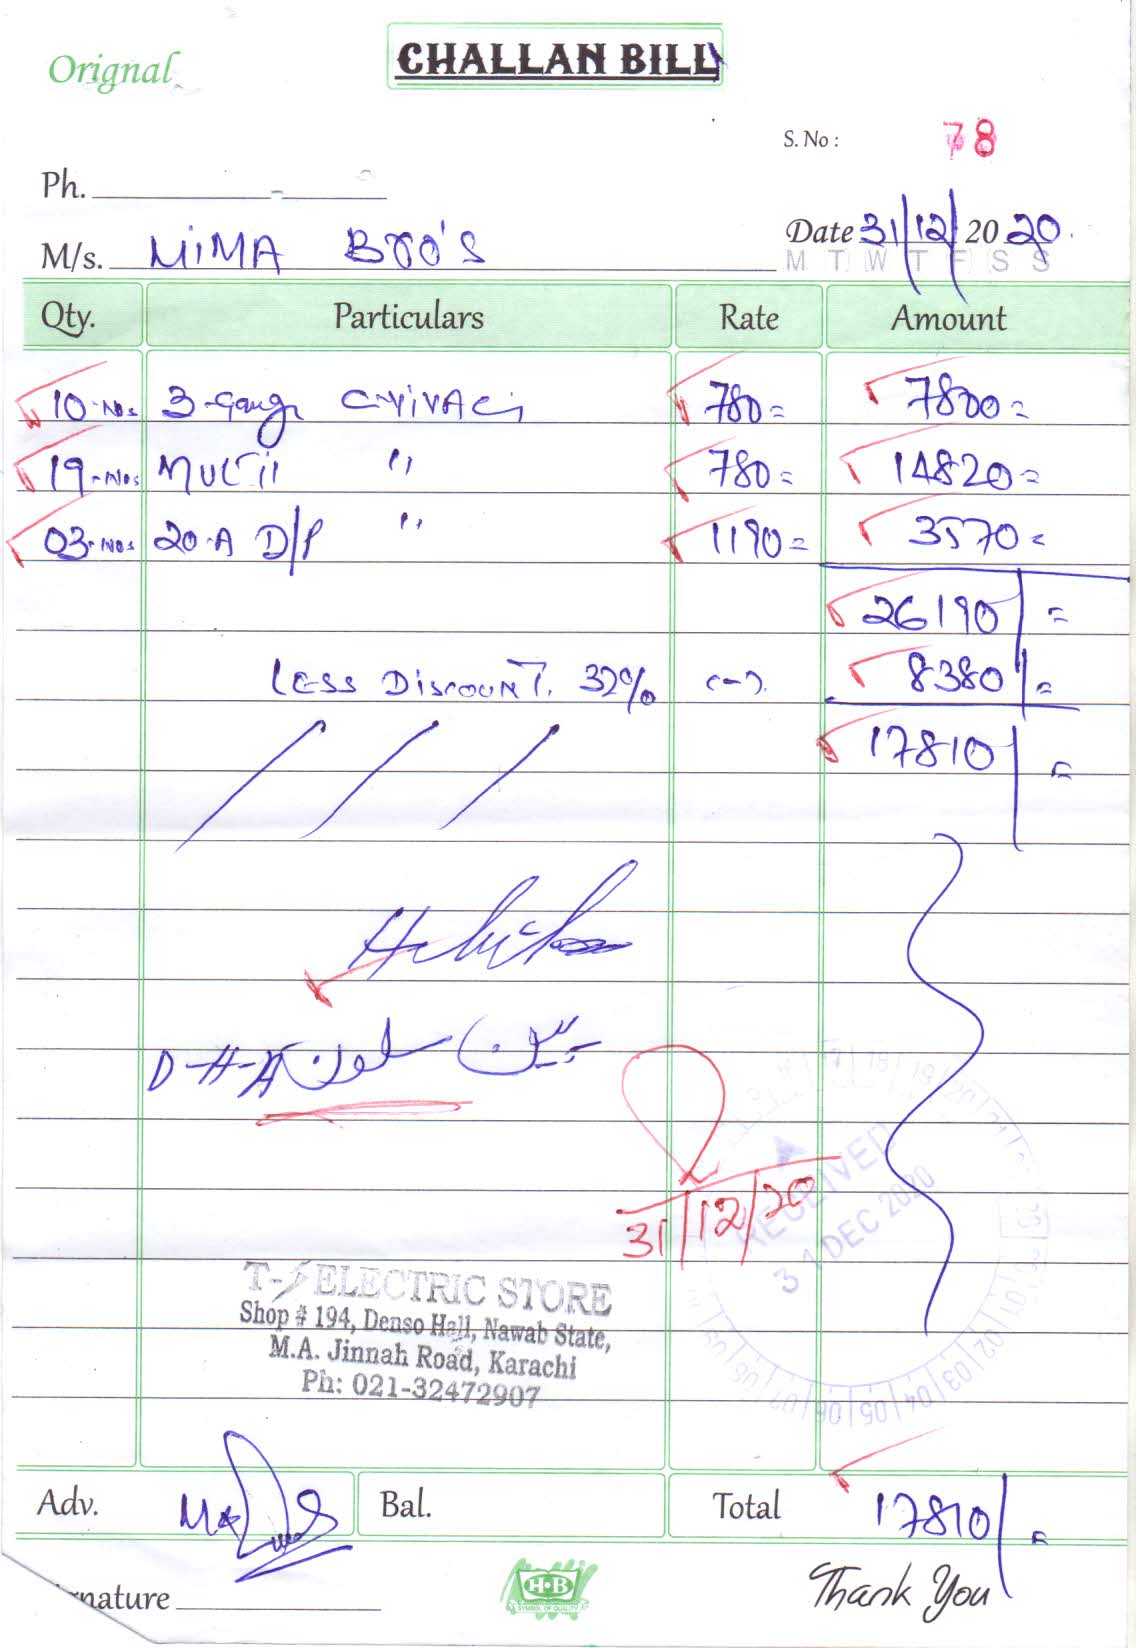 Orignal
CHALLAN BILL
S. No : 78
Ph.
M/s. MIMA BRO'S
Date 31/12/2020
M T W T F S S
Qty. Particulars Rate Amount
10-Nos 3-Gang 780= 7800=
19-Nos MULTI " 780= 14820=
03-Nos 20-A D/P " 1190= 3570=
26190/=
LESS DISCOUNT. 32% (-). 8380/=
17810/=
D-H-A
31/12/20
RECEIVED
31 DEC 2020
ELECTRIC STORE
Shop # 194, Denso Hall, Nawab State,
M.A. Jinnah Road, Karachi
Ph: 021-32472907
Adv. Bal. Total 17810/=
nature
H·B
SYMBOL OF QUALITY
Thank You